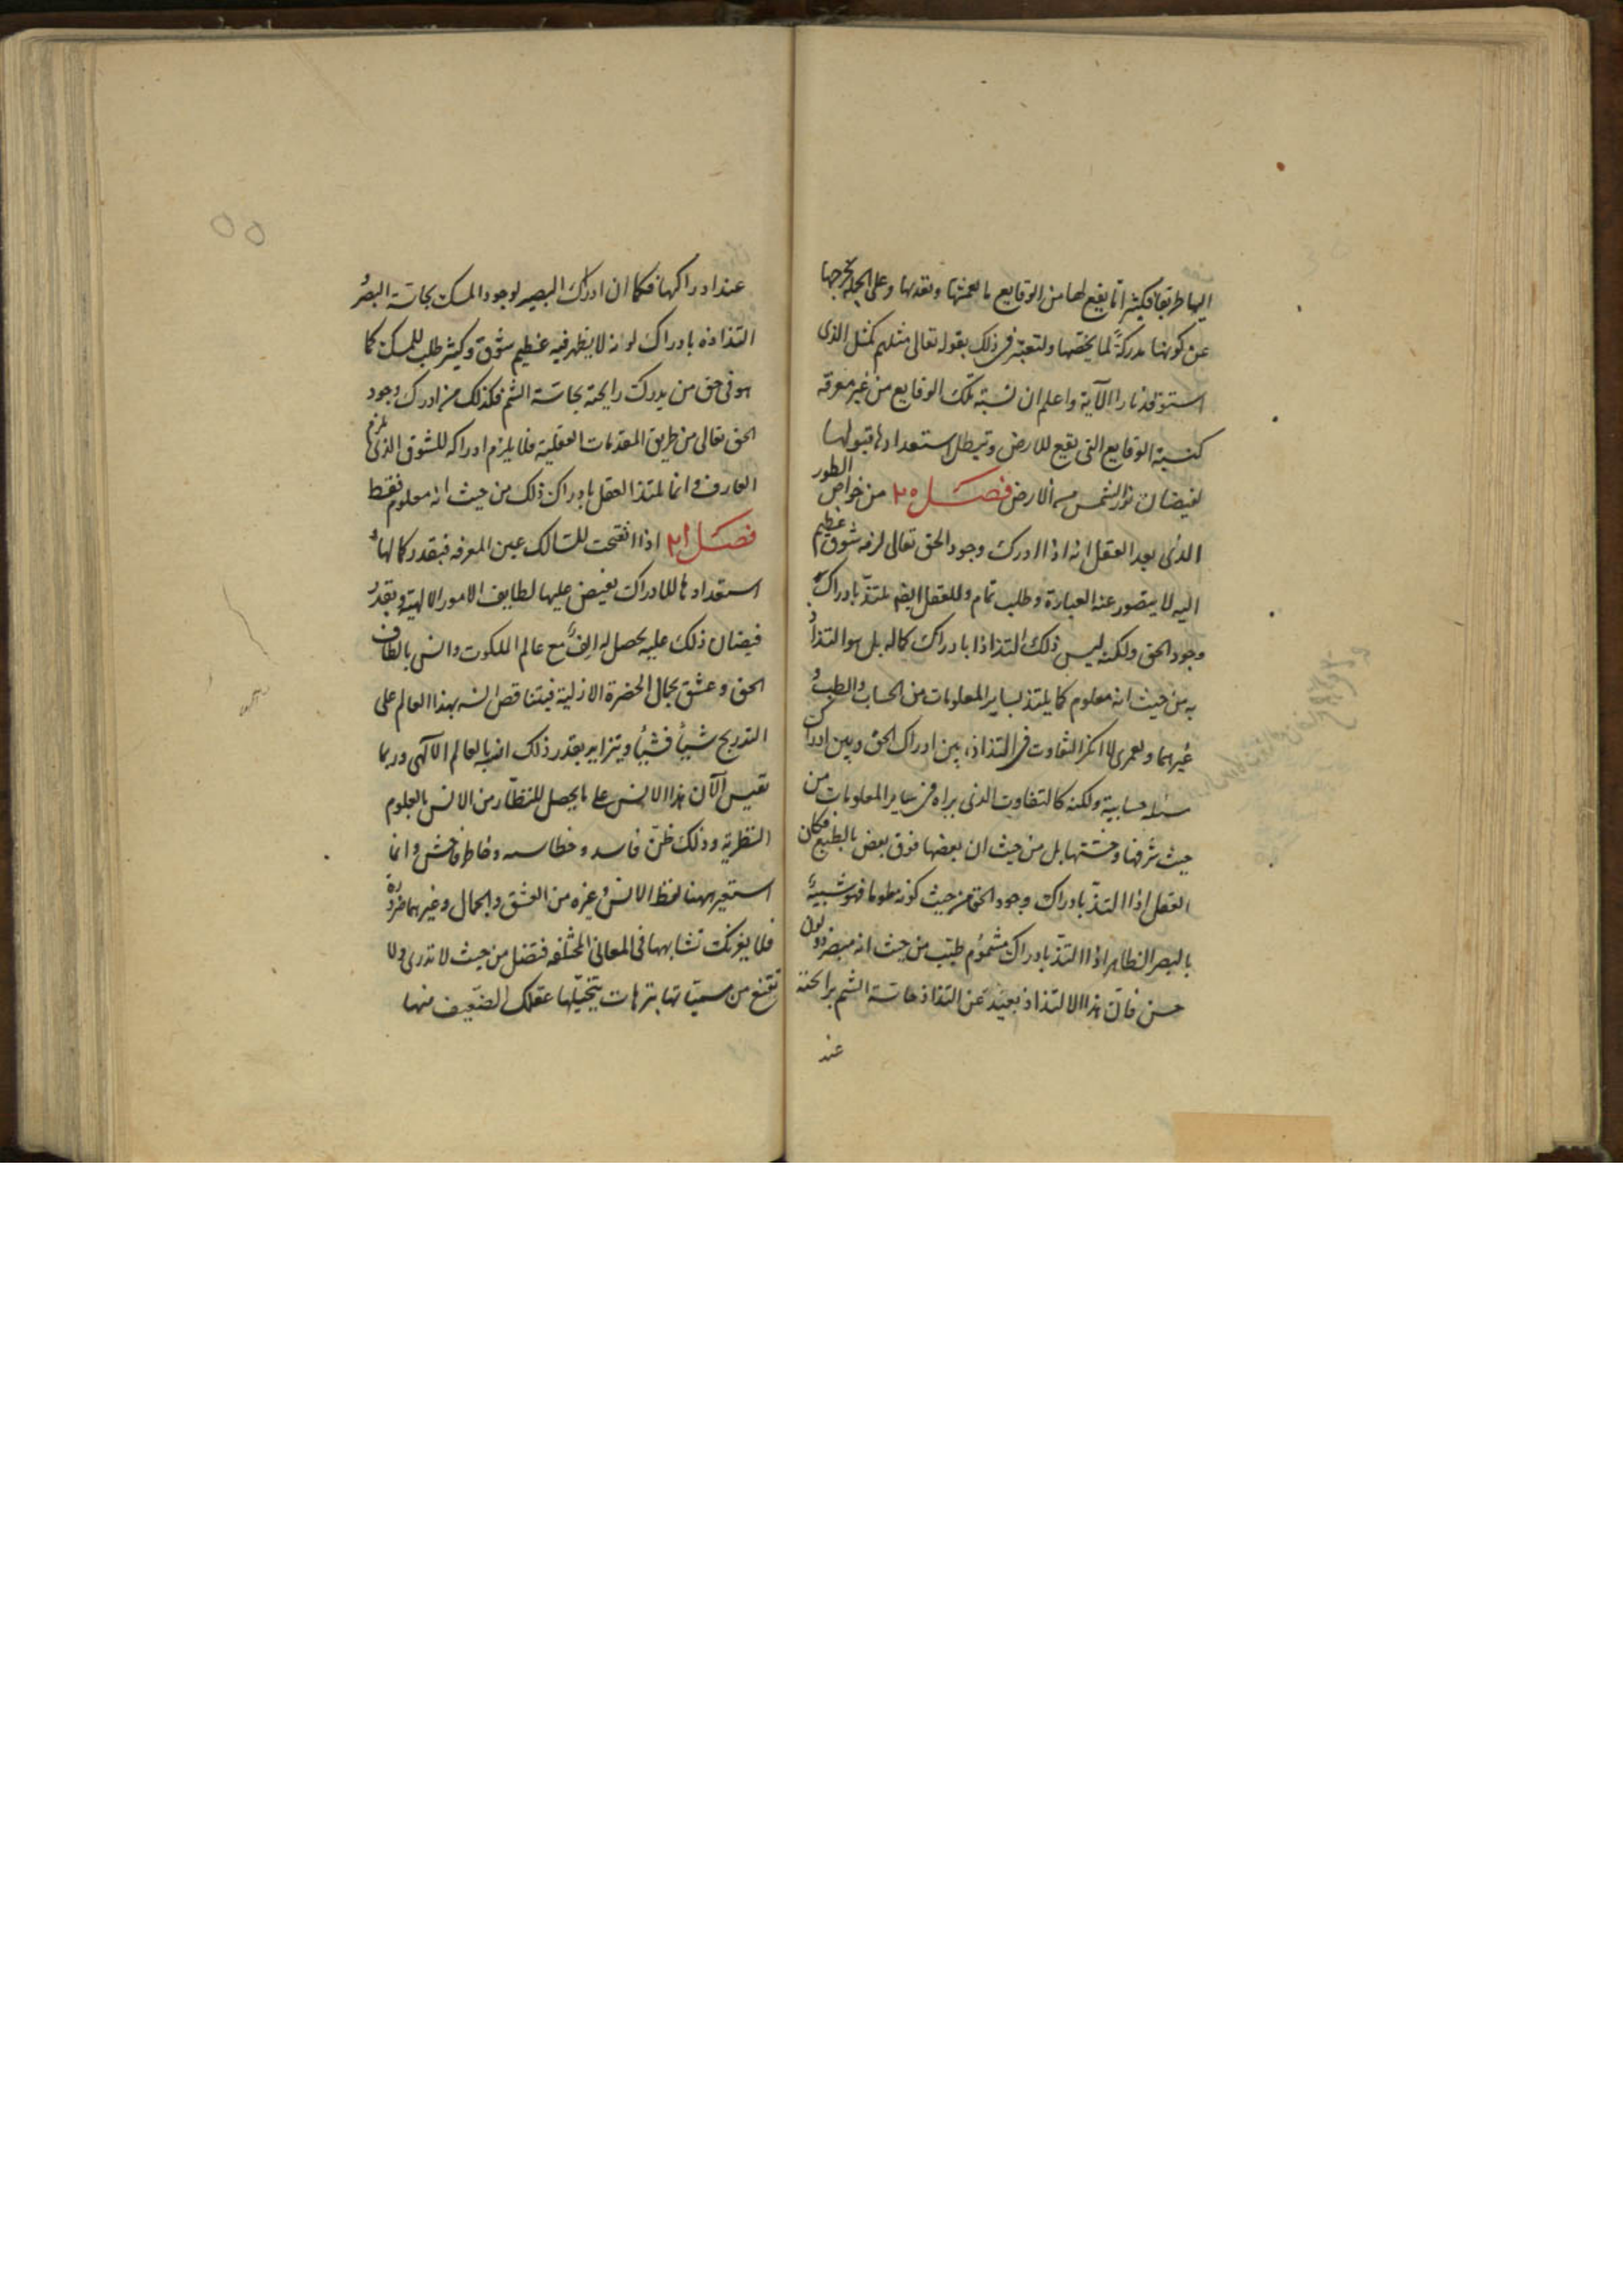 اليها طريقا فكثيرا ما يقع لها من الوقايع ما يعمشها و يقذيها وعلى الجملة يخرجها
عن كونها مدركة لما يخصها ولتعتبر فى ذلك بقوله تعالى مثلهم كمثل الذى
استوقد نارا الآية واعلم ان نسبة تلك الوقايع من غير معرفة
كنسبة الوقايع التى يقع للارض وتبطل استعدادها قبولها
لفيضان نور الشمس من الارض فصل ٢٠ من خواص الطور
الذى بعد العقل انه اذا ادرك وجود الحق تعالى لزمه شوق عظيم
اليه لا يتصور عنه العبارة وطلب تام وللعقل ايضا يلتذ بادراك
وجود الحق ولكنه ليس ذلك التذاذا بادراك كماله بل هو التذاذ
به من حيث انه معلوم كما يلتذ بساير المعلومات من الحساب والطب و
غيرهما ولعمرى لا انكر التفاوت فى التذاذه بين ادراك الحق وبين ادراك
مسئلة حسابية ولكنه كالتفاوت الذى يراه فى ساير المعلومات من
حيث شرفها وخستها بل من حيث ان بعضها فوق بعض بالطبع فكان
العقل اذا التذ بادراك وجود الحق من حيث كونه معلوما فهو شبيه
بالبصر الظاهر اذا التذ بادراك مشموم طيب من حيث انه مبصر ذو لون
حسن فان هذا الالتذاذ بعيد عن التذاذ حاسة الشم برائحته
عند
عند ادراكها فكما ان ادراك البصير لوجود المسك بحاسة البصر و
التذاذه بادراك لونه لا يظهر فيه عظيم شوق وكثير طلب للمسك كما
هو فى حق من يدرك رايحته بحاسة الشم فكذلك من ادرك وجود
الحق تعالى من طريق المقدمات العقلية فلا يلزم ادراكه للشوق الذى يلزم
العارف وانما يلتذ العقل بادراك ذلك من حيث انه معلوم فقط
فصل ٢١ اذا انفتحت للسالك عين المعرفه فبقدر كمالها و
استعدادها للادراك يفيض عليها لطايف الامور الالهية وبقدر
فيضان ذلك عليه يحصل له الف مع عالم الملكوت وانس بالطاف
الحق وعشق بجمال الحضرة الازلية فيتناقص انسه بهذا العالم على
التدريج شيئا فشيئا ويتزايد بقدر ذلك انسه بالعالم الالهى وربما
تقيس الآن هذا الانس على ما يحصل للنظار من الانس بالعلوم
النظرية وذلك ظن فاسد وخطا وخاطر فاحش وانما
استعير ههنا لفظ الانس وغيره من العشق والجمال وغيرهما ضرورة
فلا يغرنك تشابهها فى المعانى المختلفه فتضل من حيث لا تدرى ولا
تقنع من مسمياتها بترهات يتخيلها عقلك الضعيف منها